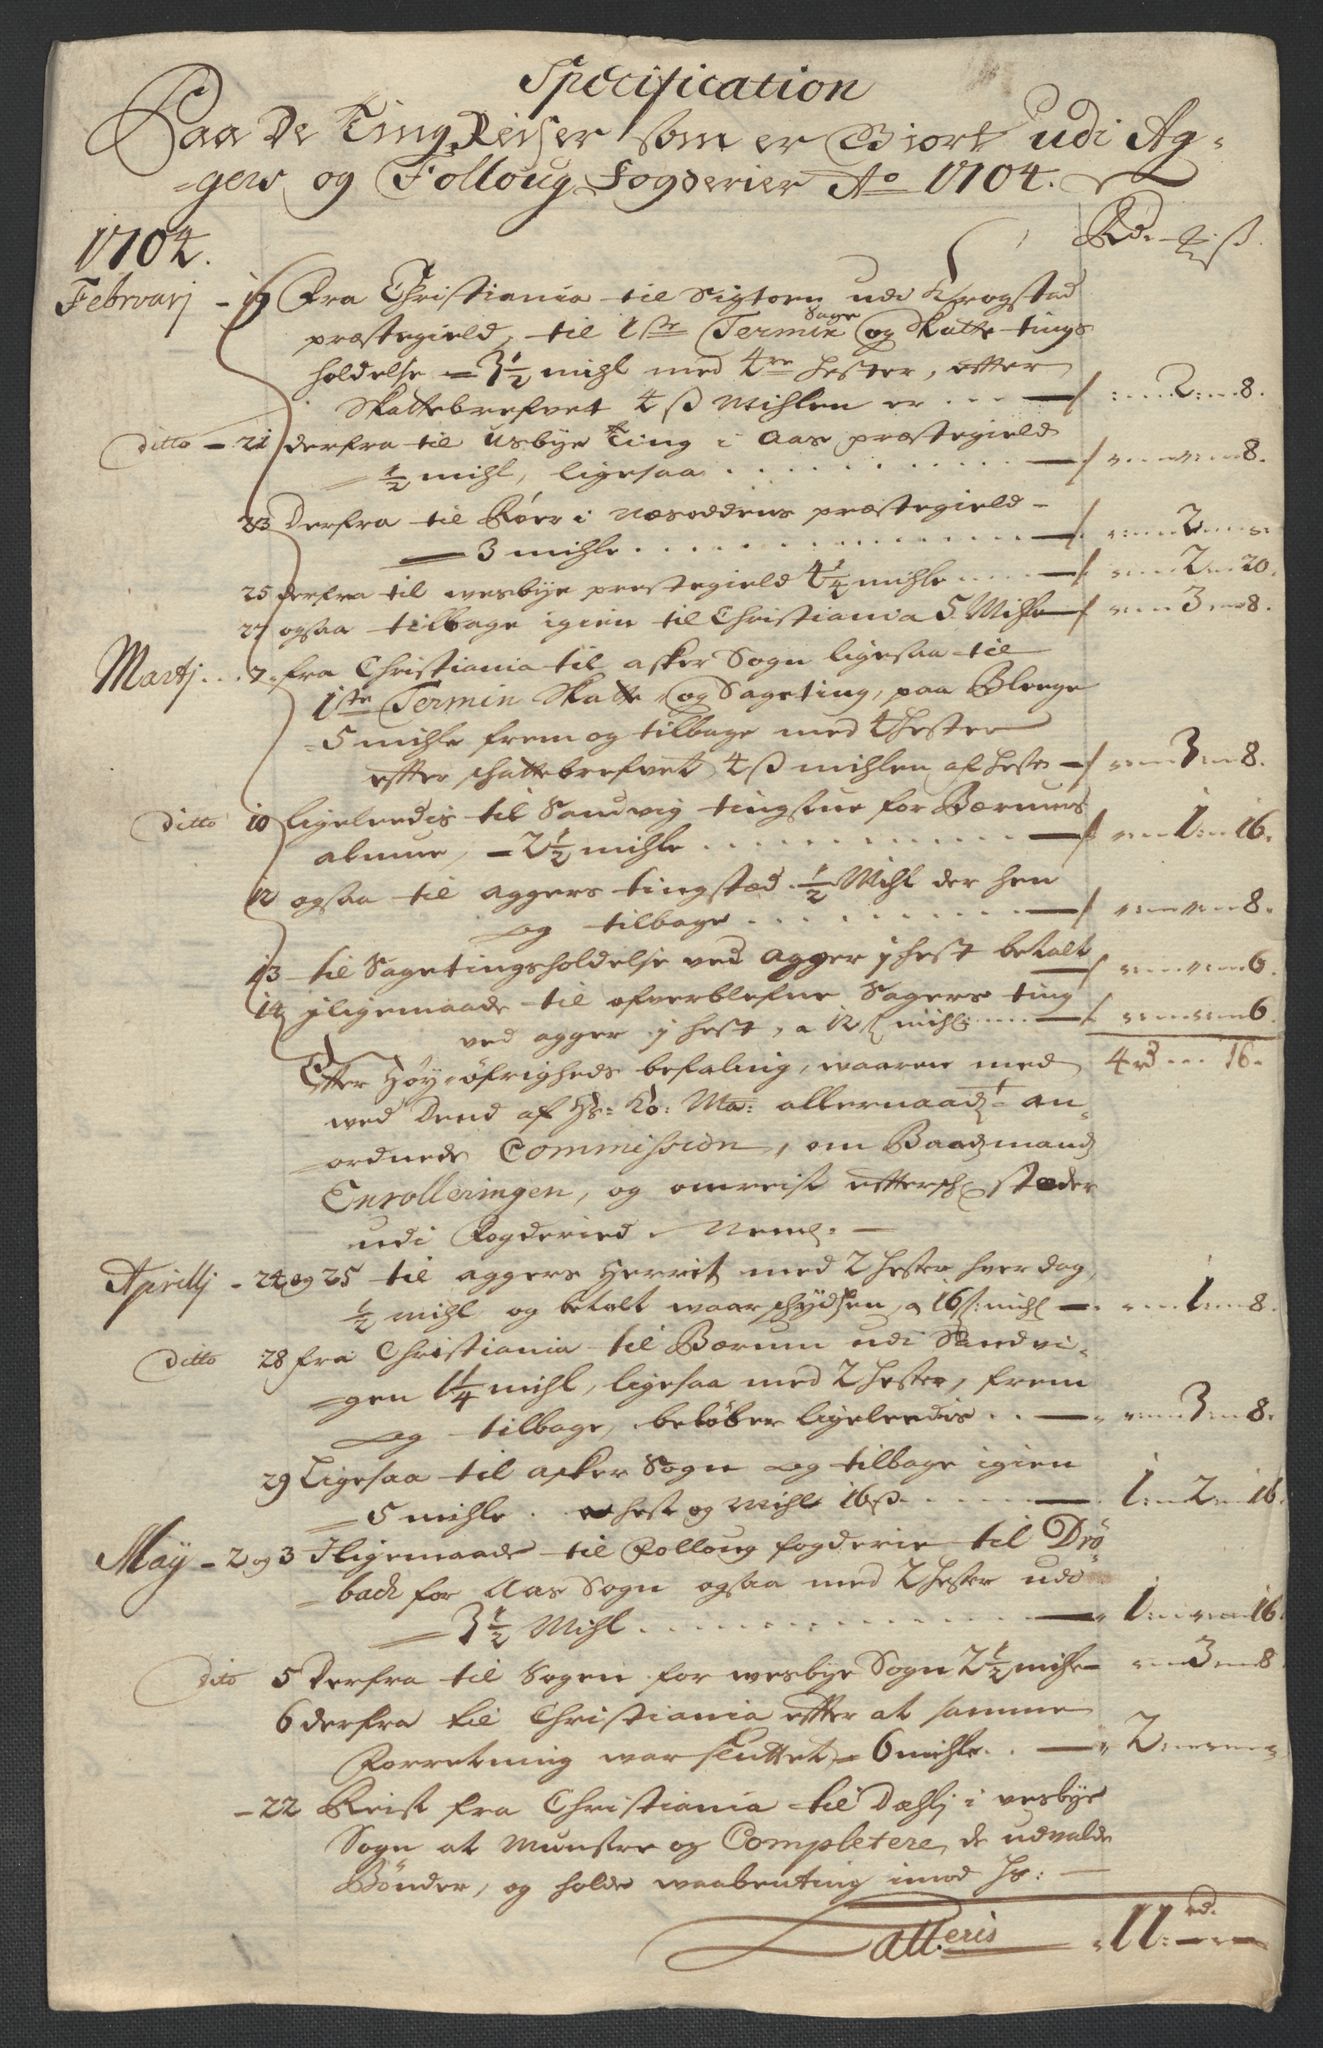 Specification
Paa De Ting Reiser som er Giort udi Ag-
gers og Folloug Fogderier Ao 1704.
1704.
Rd. ß
Februarj - 19 Fra Christiania til Sigtorn udi Krogstad
præstegield, til 1ste Termin Sage og Skatte tings
holdelse - 3 1/2 mihl med 4re hester, efter
Skattebrefvet 4 ß Mihlen er . . . 2 : 8.
ditto - 21 derfra til Usbye Ting i Aas præstegield
1/2 mihl, ligesaa . . . 8.
23 Derfra til Röer i Næsoddens præstegield -
3 mihle . . . 2
25 derfra til wesbye prestegield 4 1/4 mihle . . . 2 : 20.
27 ogsaa tilbage igien til Christiania 5 Mihle 3 : 8.
Martj . . 7. fra Christiania til asker Sogn ligesaa til
1ste Termin Skatte og Sageting, paa Bleege
5 mihle frem og tilbage med 4 hester
efter schattebrefvet 4 ß mihlen af hester 3 : 8.
Ditto 10 ligeleedis til Sandwig tingstue for Bærums
almue, - 2 1/2 mihle . . . 1 : 16.
12 ogsaa til aggers tingstæd 1/2 Mihl der hen
og tilbage . . . 8.
13 til Sagetingsholdelse ved Agger j hest betalt 6.
14 jligemaade til ofverblefne Sagers ting
ved agger j hest, a 12 ß mihl . . . 6.
4 rd 16.
Efter Höy-öfrigheds befaling, waaren med
wed Dend af Hs: Ko: Ma: allernaadt an-
ordnede Commission, om Baadzmandz
Enrolleringen, og omreist effterschr stæder
udi Fogderied Neml. -
Aprillj - 24 og 25 til aggers Herrit med 2 hester hver dag,
1/2 mihl og betalt waar schydsen, a 16 ß: mihl - 1 : 8.
ditto 28 fra Christiania til Bærum udi Sandvi-
gen 1 1/4 mihl, ligesaa med 2 hester, frem
og tilbage, belöber ligeleedis . . 3 : 8.
29 Ligesaa til asker Sogn og tilbage igien
5 mihle . a hest og Mihl 16 ß . . . 1 : 2 : 16.
Maÿ - 2 og 3 Iligemaade til Folloug fogderie til Drö-
bach for Aas Sogn ogsaa med 2 hester udi
3 1/2 Mihl . . . 1 : 16.
Dito 5 Derfra til Sogen for wesbye Sogn 2 1/2 mihle 3 : 8
6 derfra til Christiania effter at samme
Forretning war sluttet, 6 mihle . . 2
- 22 Reist fra Christiania til Dæhlj i vesbye
Sogn at Munstre og Completere de udvalde
Bönder, og holde waabenting imod Hs: -
Latteris 11 rd.